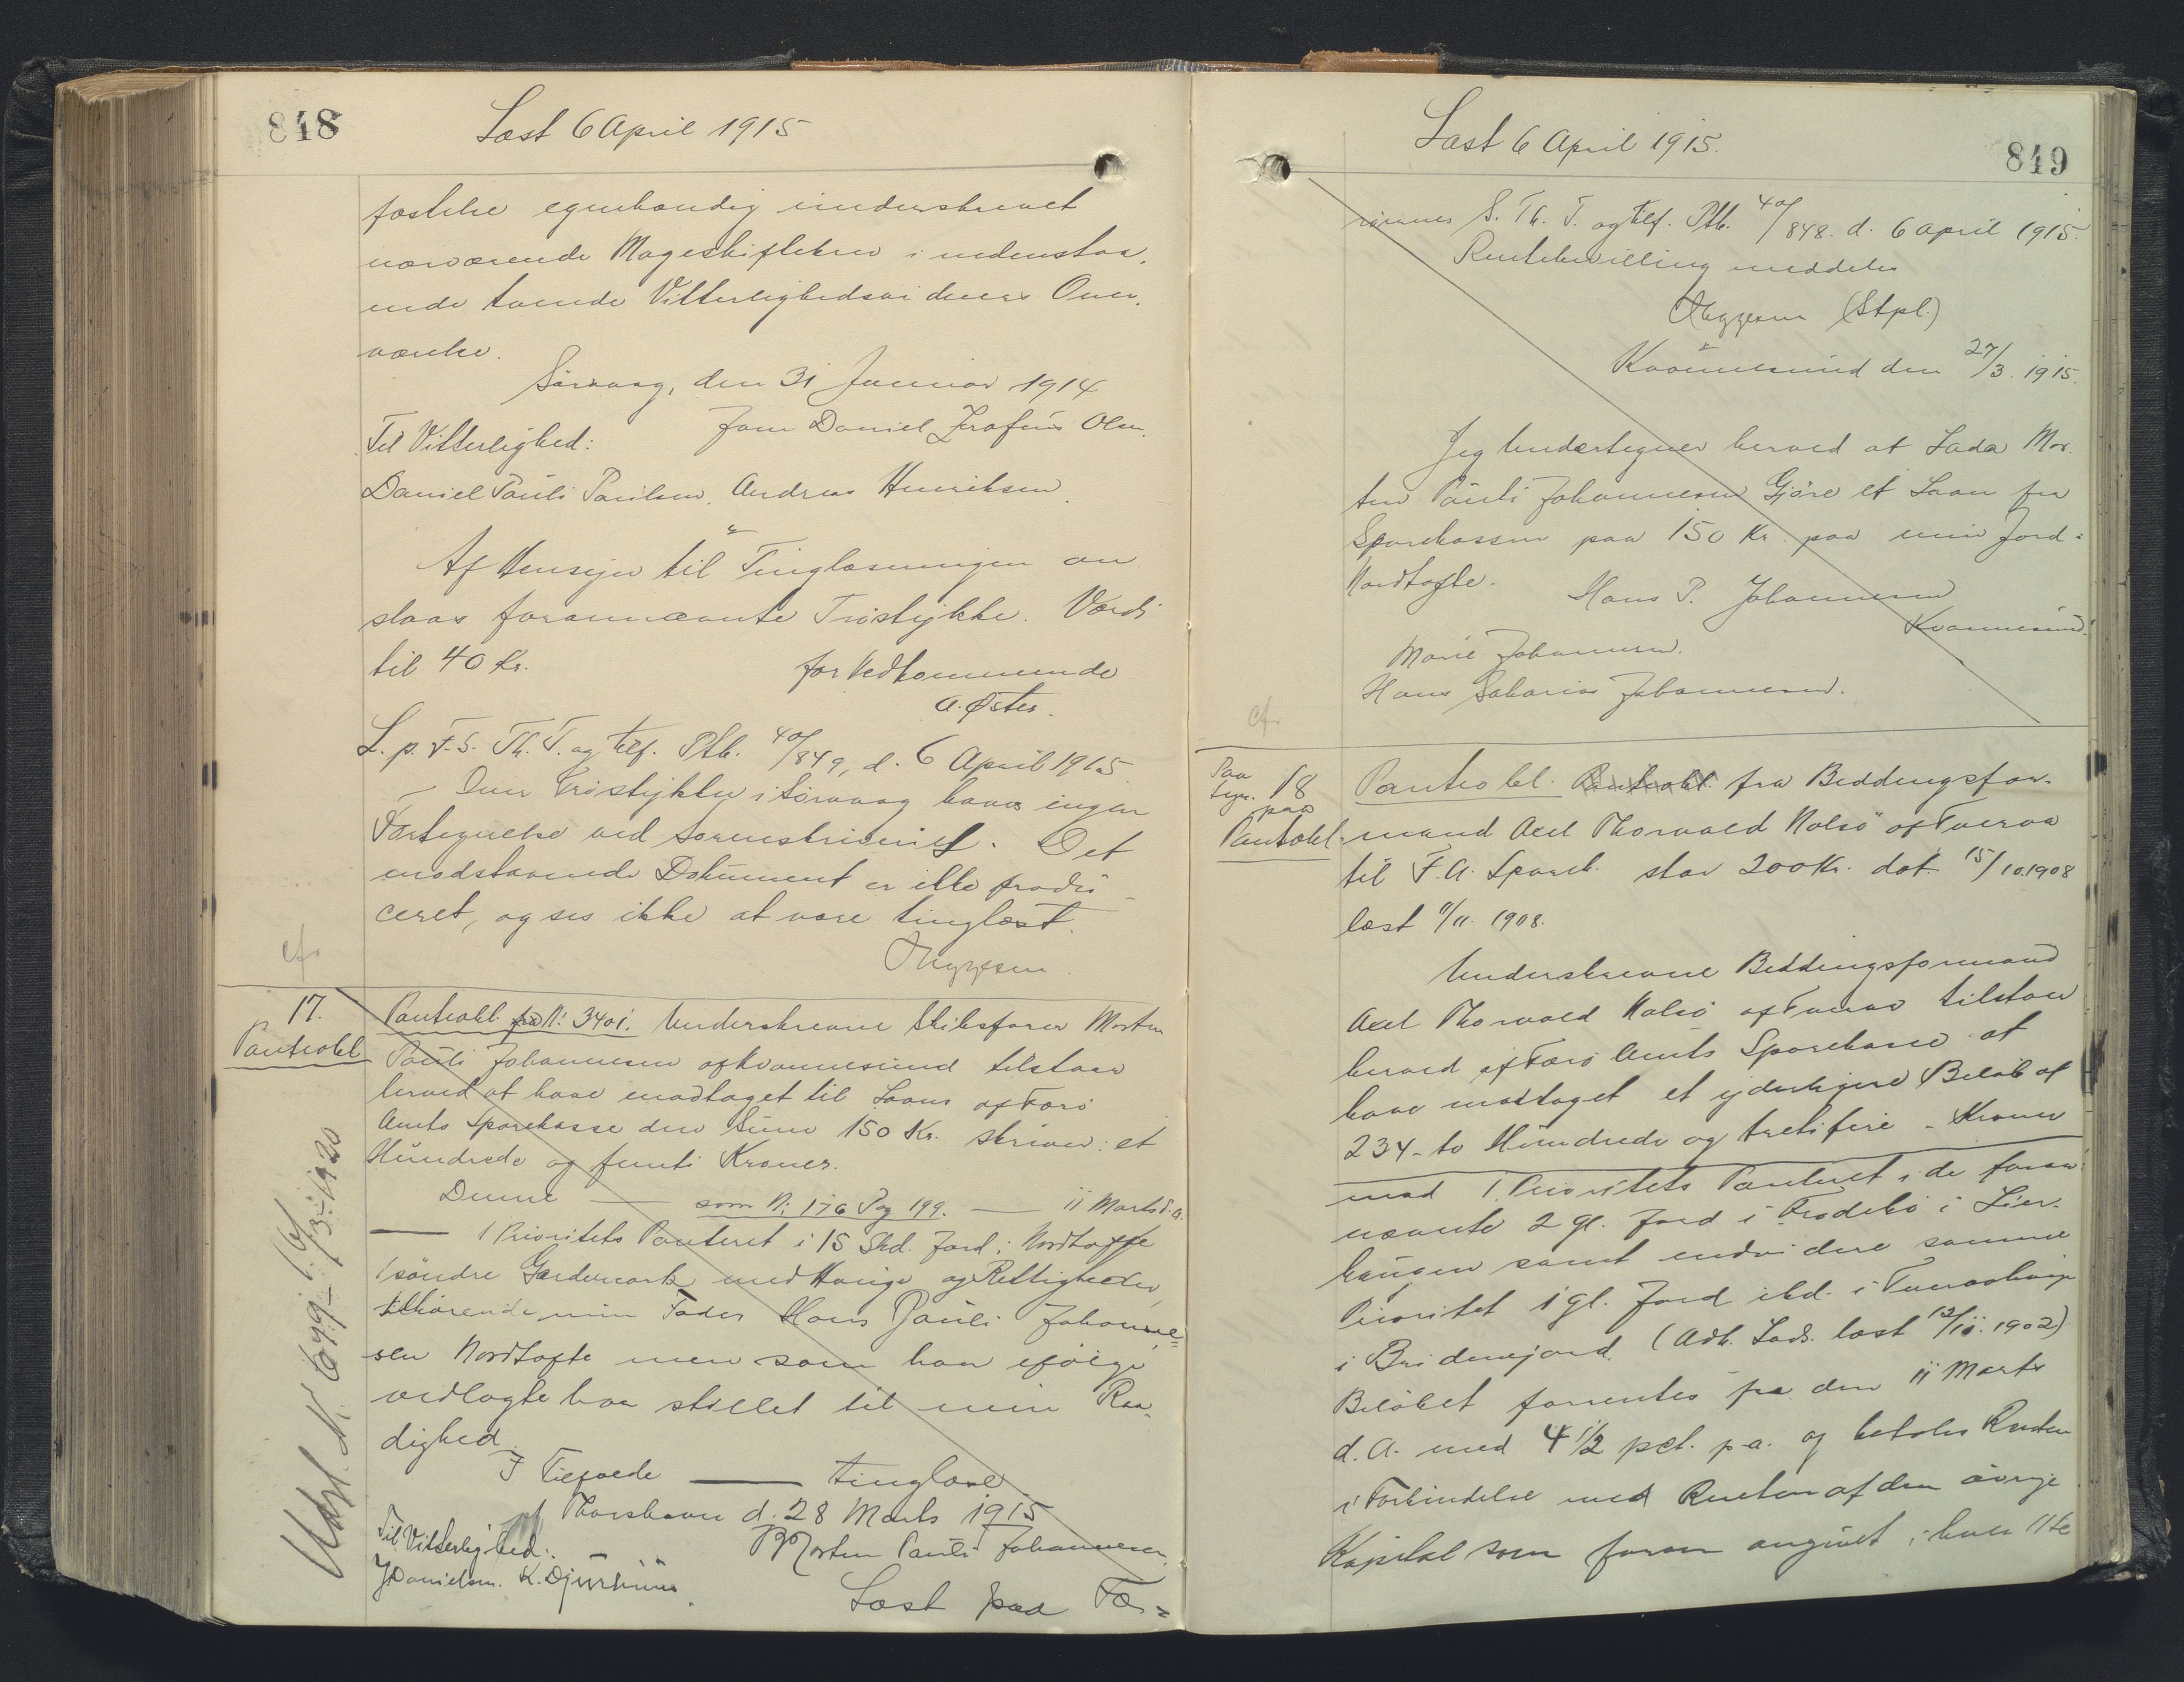 848
Læst 6 April 1915
fæstelse egenhændig underskrevet
nærværende Mageskiftebrev i nedenstaa-
ende tvende Vitterlighedsvidners Over-
værelse.
Sørvaag, den 31 Januar 1914
Joen Daniel Zrafius Olsen.
Til Vitterlighed:
Daniel Pauli Poulsen. Andreas Henriksen.
Af Hensyn til Tinglæsningen an
slaas forannævnte Trøstykke. Værdi
til 40 Kr.
for Vedkommende
A. Øster.
L. p. F. S. Th. T. og tilf. Ptb. 40/849, d. 6 April 1915.
Over Trøstykker i Sørvaag haves ingen
Fortegnelse ved Sorenskriveriet. Det
modstaaende Dokument er ikke produ-
ceret, og ses ikke at være tinglæst.
cf.
17.
Pantobl.
Pantobl. fra N: 3401. Underskrevne Skibsfører Morten
Pauli Johannesen af Kvannesund tilstaar
herved at have modtaget til Laans af Færø
Amts Sparekasse den Sum 150 Kr. skriver: et
Hundrede og femti Kroner.
Denne — som N: 176 Pag 199. — 11 Marts d. A.
— 1 Prioritets Panteret i 15 Skd. Jord i Nordtofte
søndre Gærdemark med Hauge og Rettigheder,
tilhørende min Fader Hans Pauli Johanne-
sen Nordtofte men som han ifølge
vedlagte har stillet til min Raa-
dighed.
I Tilfælde — tinglæse
pt Thorshavn d. 28 Marts 1915
Morten Pauli Johannesen.
Til Vitterlighed:
J Danielsen. K. Djurhuus.
Læst paa Fær-
Udsl. N. 679 - 3/3 1920
849
Læst 6 April 1915.
øernes S. Th. T. og tilf. Ptb. 40/848. d. 6 April 1915.
Rentebevilling meddeles
(Stpl.)
Kvannesund den 27/3. 1915.
Jeg Undertegner herved at Lada Mor
ten Pauli Johannesen Gjøre et Laan fra
Sparekassen paa 150 Kr. paa min Jord i
Nordtofte.
Hans P. Johannesen
Kvannesund.
Marie Johannesen.
Hans Sakarias Johannesen.
cf.
Paa
tegn. 18
paa
Pantobl.
Pantobl. Pantobl. fra Beddingsfor-
mand Axel Thorvald Nolsø af Tveraa
til F. A. Spareb. stor 200 Kr. dat. 15/10.1908
læst 9/11. 1908.
Underskrevne Beddingsformand
Axel Thorvald Nolsø af Tveraa tilstaar
herved af Færø Amts Sparekasse at
have modtaget et yderligere Beløb af
234 - to Hundrede og tretifire - Kroner
mod 1 Prioritets Panteret i de foran
nævnte 2 gl. Jord i Frodebø i Lier-
haugen samt endvidere samme
Prioritet 1 gl. Jord ibd. i Tveraahauge
i Bridenejord. (Adk. Lods. læst 12/10. 1902)
Beløbet forrentes fra den 11 Marts
d. A. med 4 1/2 pct. p. a. og betales Renten
i Forbindelse med Renten af den øvrige
Kapital som foran angivet i hver 11te